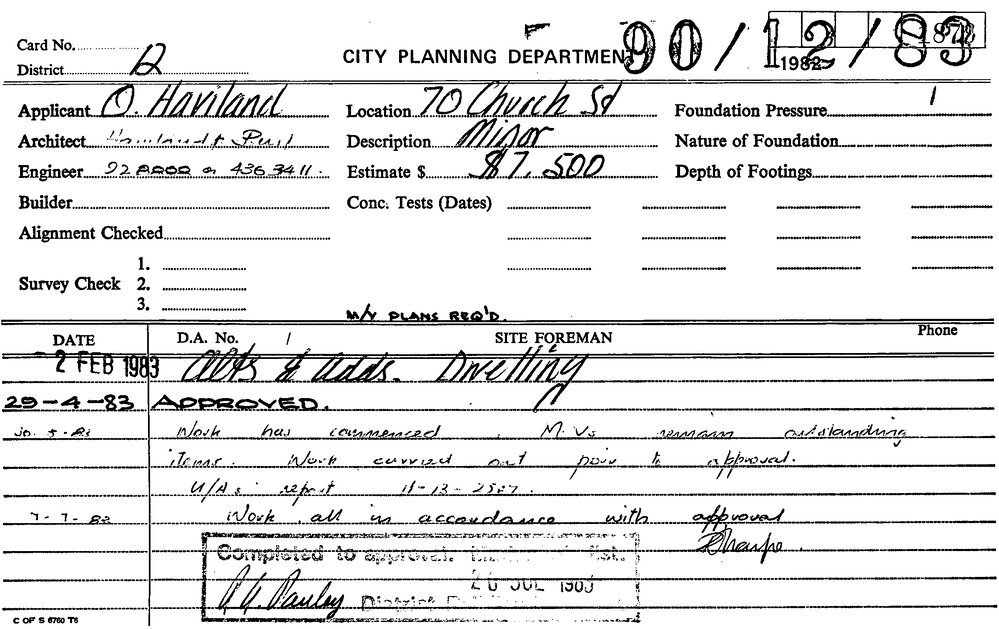 Card No.
District 12
CITY PLANNING DEPARTMENT
90/12/83
1982
Applicant O. Haviland
Location 70 Church St
Foundation Pressure
Architect
Description Minor
Nature of Foundation
Engineer 436 3411.
Estimate $ $7,500
Depth of Footings
Builder
Conc. Tests (Dates)
Alignment Checked
Survey Check
1.
2.
3.
M/Y PLANS REQ'D.
DATE
D.A. No.
SITE FOREMAN
Phone
2 FEB 1983 Alts & adds. Dwelling
29-4-83 APPROVED.
Work has commenced. M.Vs remain outstanding
items. Work carried out prior to approval.
report 11-13-2527.
7-7-83 Work all in accordance with approval
Sharpe.
Completed to approval. list.
District
C OF S 6760 T6